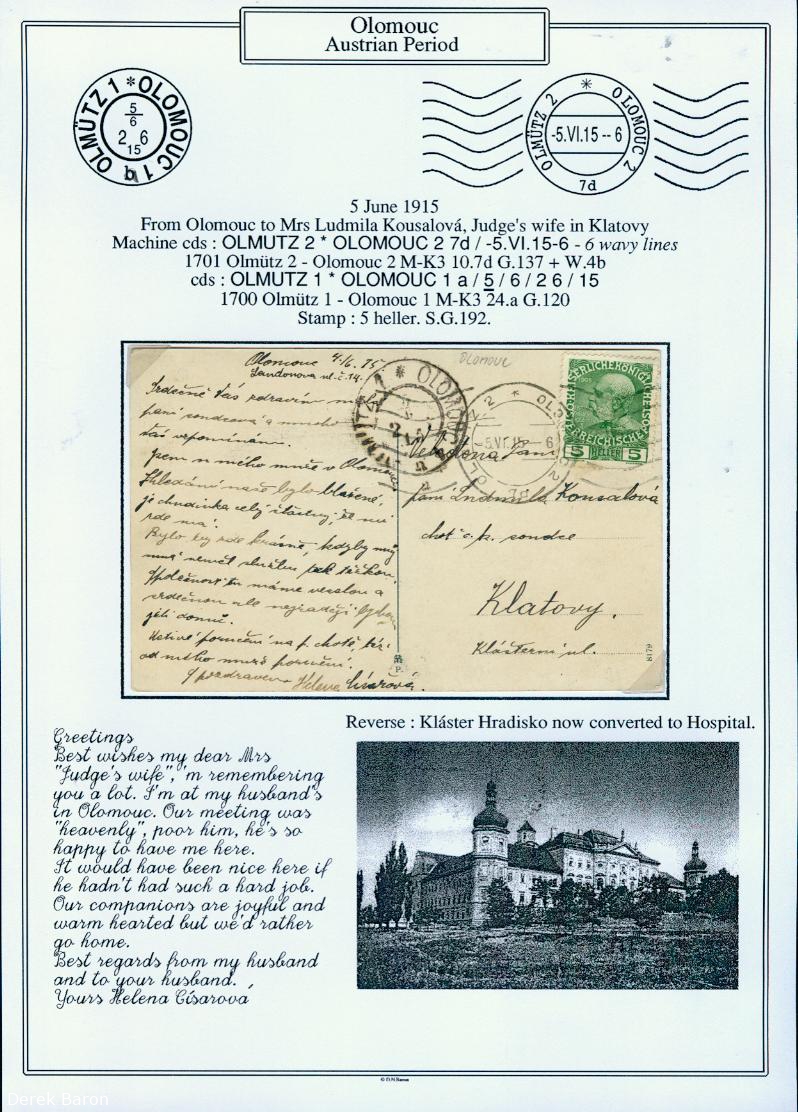 Olomouc
Austrian Period
OLMÜTZ 1 * OLOMOUC 1 b
5
6
2 6
15
OLMÜTZ 2 * OLOMOUC 2
-5.VI.15--6
7d
5 June 1915
From Olomouc to Mrs Ludmila Kousalová, Judge's wife in Klatovy
Machine cds : OLMUTZ 2 * OLOMOUC 2 7d / -5.VI.15-6 - 6 wavy lines
1701 Olmütz 2 - Olomouc 2 M-K3 10.7d G.137 + W.4b
cds : OLMUTZ 1 * OLOMOUC 1 a / 5 / 6 / 2 6 / 15
1700 Olmütz 1 - Olomouc 1 M-K3 24.a G.120
Stamp : 5 heller. S.G.192.
Olomouc 4./6. 15
Landonova ul. č. 14.
OLOMOUC
Srdečně Vás zdravím
paní soudcová a mnoho
Vás vzpomínám.
jsem u mého muže v Olomouci
Shledání naše bylo blažené,
je chudinka celý šťastný, že mne
zde má.
Bylo by zde krásně, kdyby můj
muž neměl službu tak těžkou.
Společnost tu máme veselou a
srdečnou ale nejraději bychom
jeli domů.
Uctivé poručení na p. chotě, též
od mého muže poručení.
S pozdravem Helena Císařová.
* OLOMOUC
-5.VI.15--6
5 HELLER 5
Velectěná Paní
paní Ludmila Kousalová
choť c. k. soudce
Klatovy.
Klášterní ul.
P.
8179
Reverse : Kláster Hradisko now converted to Hospital.
Greetings
Best wishes my dear Mrs
"Judge's wife", 'm remembering
you a lot. I'm at my husband's
in Olomouc. Our meeting was
"heavenly", poor him, he's so
happy to have me here.
It would have been nice here if
he hadn't had such a hard job.
Our companions are joyful and
warm hearted but we'd rather
go home.
Best regards from my husband
and to your husband.
Yours Helena Císarová
© D.N.Baron
Derek Baron